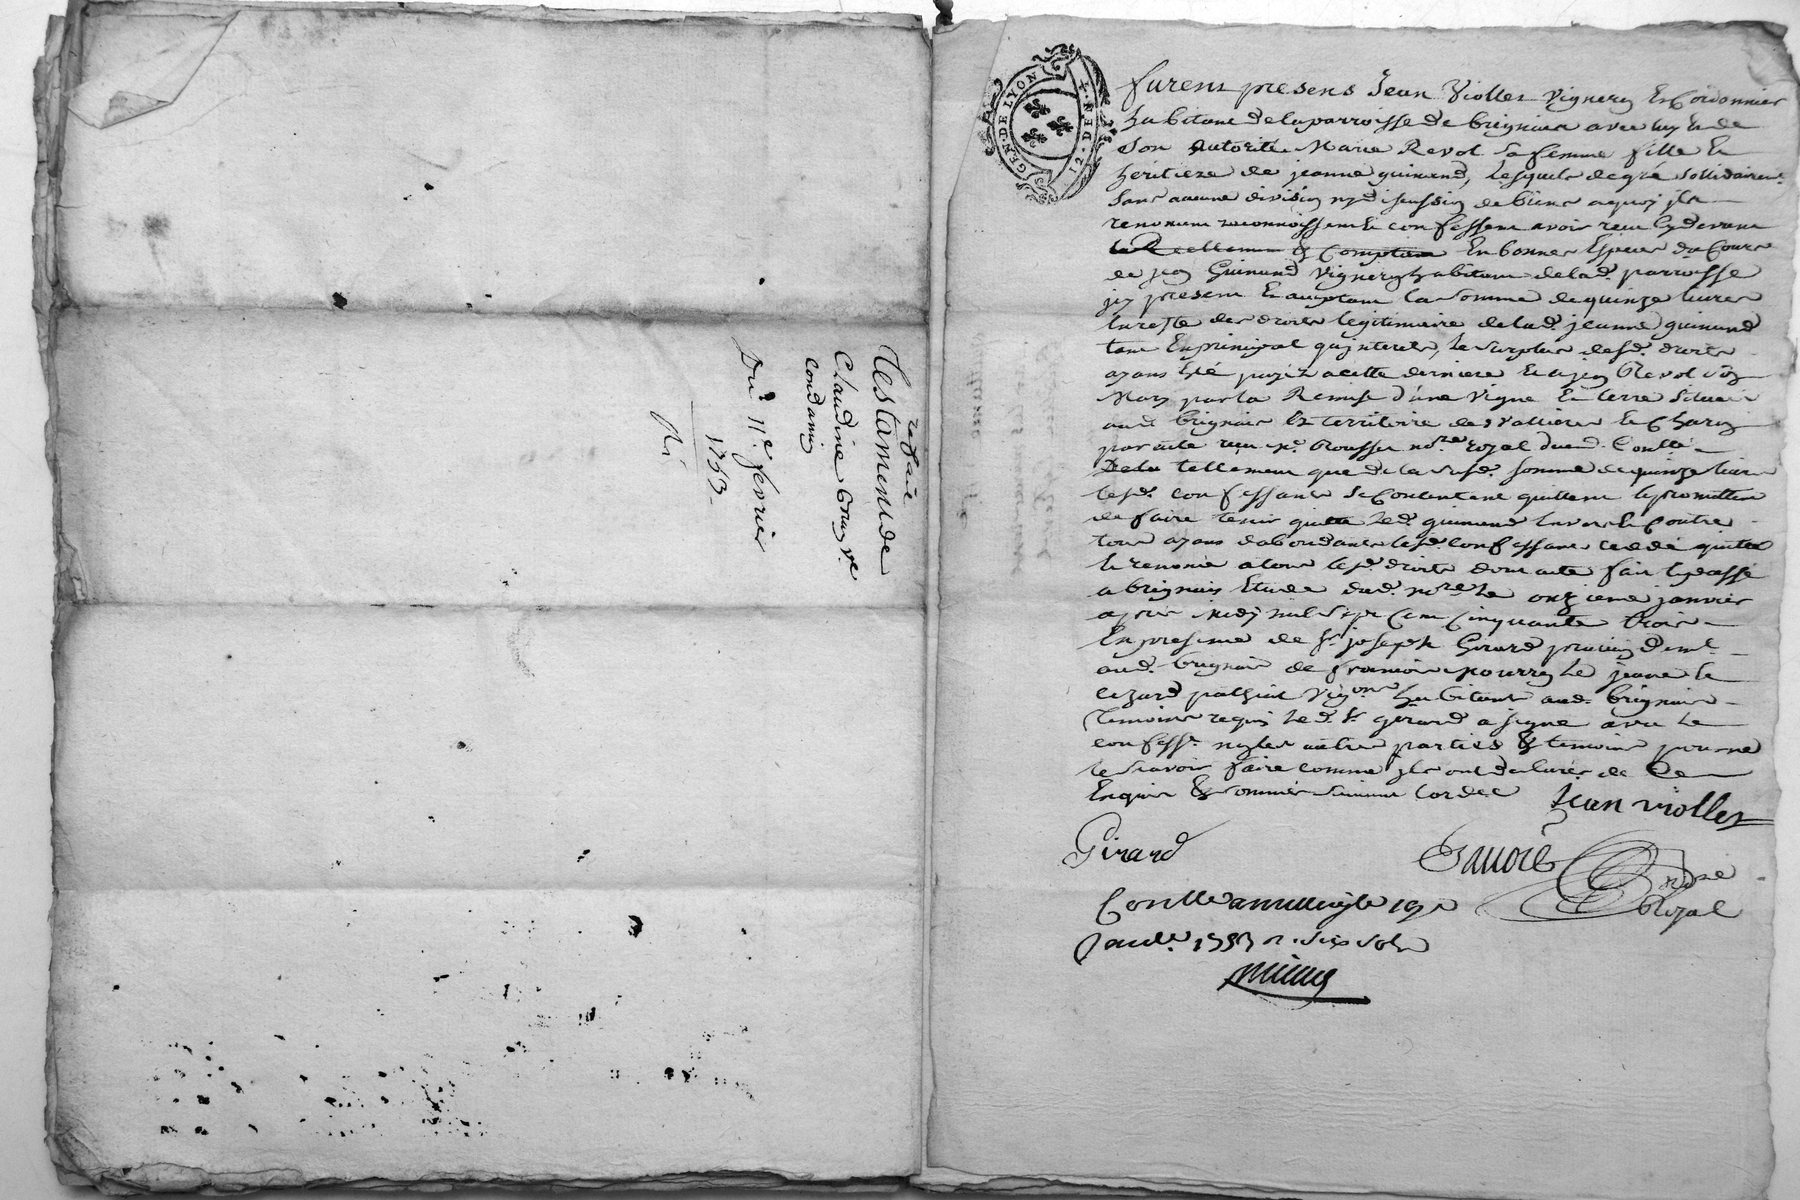 refait
Testament de
Claudine Gouy ve
Condamin
Du 11e fevrier
1753
GEN. DE LYON
12. DEN. 4
furent presens Jean Viollet vigneron Et Cordonnier
habitant de la parroisse de brignais avec luy & de
Son autorité Marie Revol sa femme fille &
heritiere de jeanne guinand, lesquels de gré solidairemt
sans aucune division ny discussion de biens a quoy ils
renoncent reconnoissent & confessent avoir reçu cy devant
& Comptant En bonnes Especes du Cours
de jean Guinand vigneron habitant de lad. parroisse
icy present & acceptant la somme de quinze livres
du reste des droits legitimaire de lad. jeanne guinand
tant En principal qu'interets, le surplus desd. droits
ayant Eté payé a cette derniere & a jean Revol son
Mary par la Remise d'une vigne & terre située
aud. brignais & territoire des vallieres & Chary
par acte reçu Me. Brousse nore royal dud.
tellement que de la susd. somme de quinze livres
lesd. confessants se Contentent quittent & promettent
de faire tenir quitte led. guinand Envers & Contre
tous ayant d'abondance lesd. confessants cedé quitté
& renoncé a tous lesd. droits dont acte fait & passé
a brignais Etude dud. nore le onzieme janvier
apres midy mil sept Cent Cinquante trois
En presence de Sr joseph Girard praticien demt
aud. brignais de françois pourret le jeune &
vigons habitants aud. brignais
temoins requis led. Sr girard a signé avec le
confesst non les autres parties & temoins pour ne
le scavoir faire comme ils ont declarés de Ce
Enquis & sommés suivant l'ordce Jean viollet
Girard
nore
Royal
Conllé a 19e
Janvr 1753 r. six sols